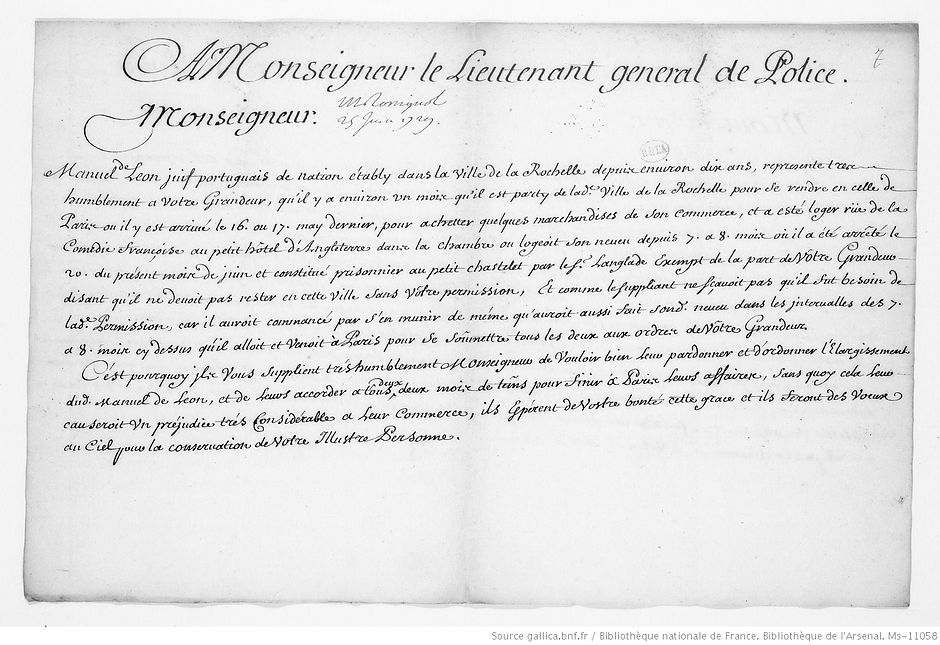 A Monseigneur le Lieutenant general de Police.
7
Monseigneur.
25 Juin 1729.
Manuel de Leon juif portuguais de nation établÿ dans la Ville de la Rochelle depuis environ dix ans, represente tres
humblement a Votre Grandeur, qu'il ÿ a environ un mois qu'il est partÿ de lad.e Ville de la Rochelle pour se rendre en celle de
Paris ou il ÿ est arrivé le 16. ou 17. maÿ dernier, pour achetter quelques marchandises de son commerce, et a esté loger rüe de la
Comedie Françoise au petit hôtel d'Angleterre dans la chambre ou logeoit son neveu depuis 7. a 8. mois où il a été arrêté le
20. du present mois de juin et constitué prisonnier au petit chastelet par le Sr. Langlade Exempt de la part de Vôtre Grandeur
disant qu'il ne devoit pas rester en cette Ville sans Vôtre permission, Et comme le supliant ne sçavoit pas qu'il fut besoin de
lad.e Permission, car il auroit commancé par s'en munir de meme qu'auroit aussi fait sond. neveu dans les intervalles des 7.
a 8. mois cÿ dessus qu'il alloit et venoit à Paris pour se soûmettre tous les deux aux ordres de Vôtre Grandeur.
C'ést pourquoy ils Vous Supplient trés humblement Monseigneur de Vouloir bien leur pardonner et d'ordonner l'Elargissement
dud. Manuel de Leon, et de leurs accorder a tous deux deux mois de tems pour finir à Paris leurs affaires, sans quoy cela leur
causeroit un préjudice trés Considérable a leur Commerce, ils Espérent de Vostre bonté cette grace et ils feront des Voeux
au Ciel pour la conservation de Votre Illustre Personne.
Source gallica.bnf.fr / Bibliothèque nationale de France. Bibliothèque de l'Arsenal. Ms-11058